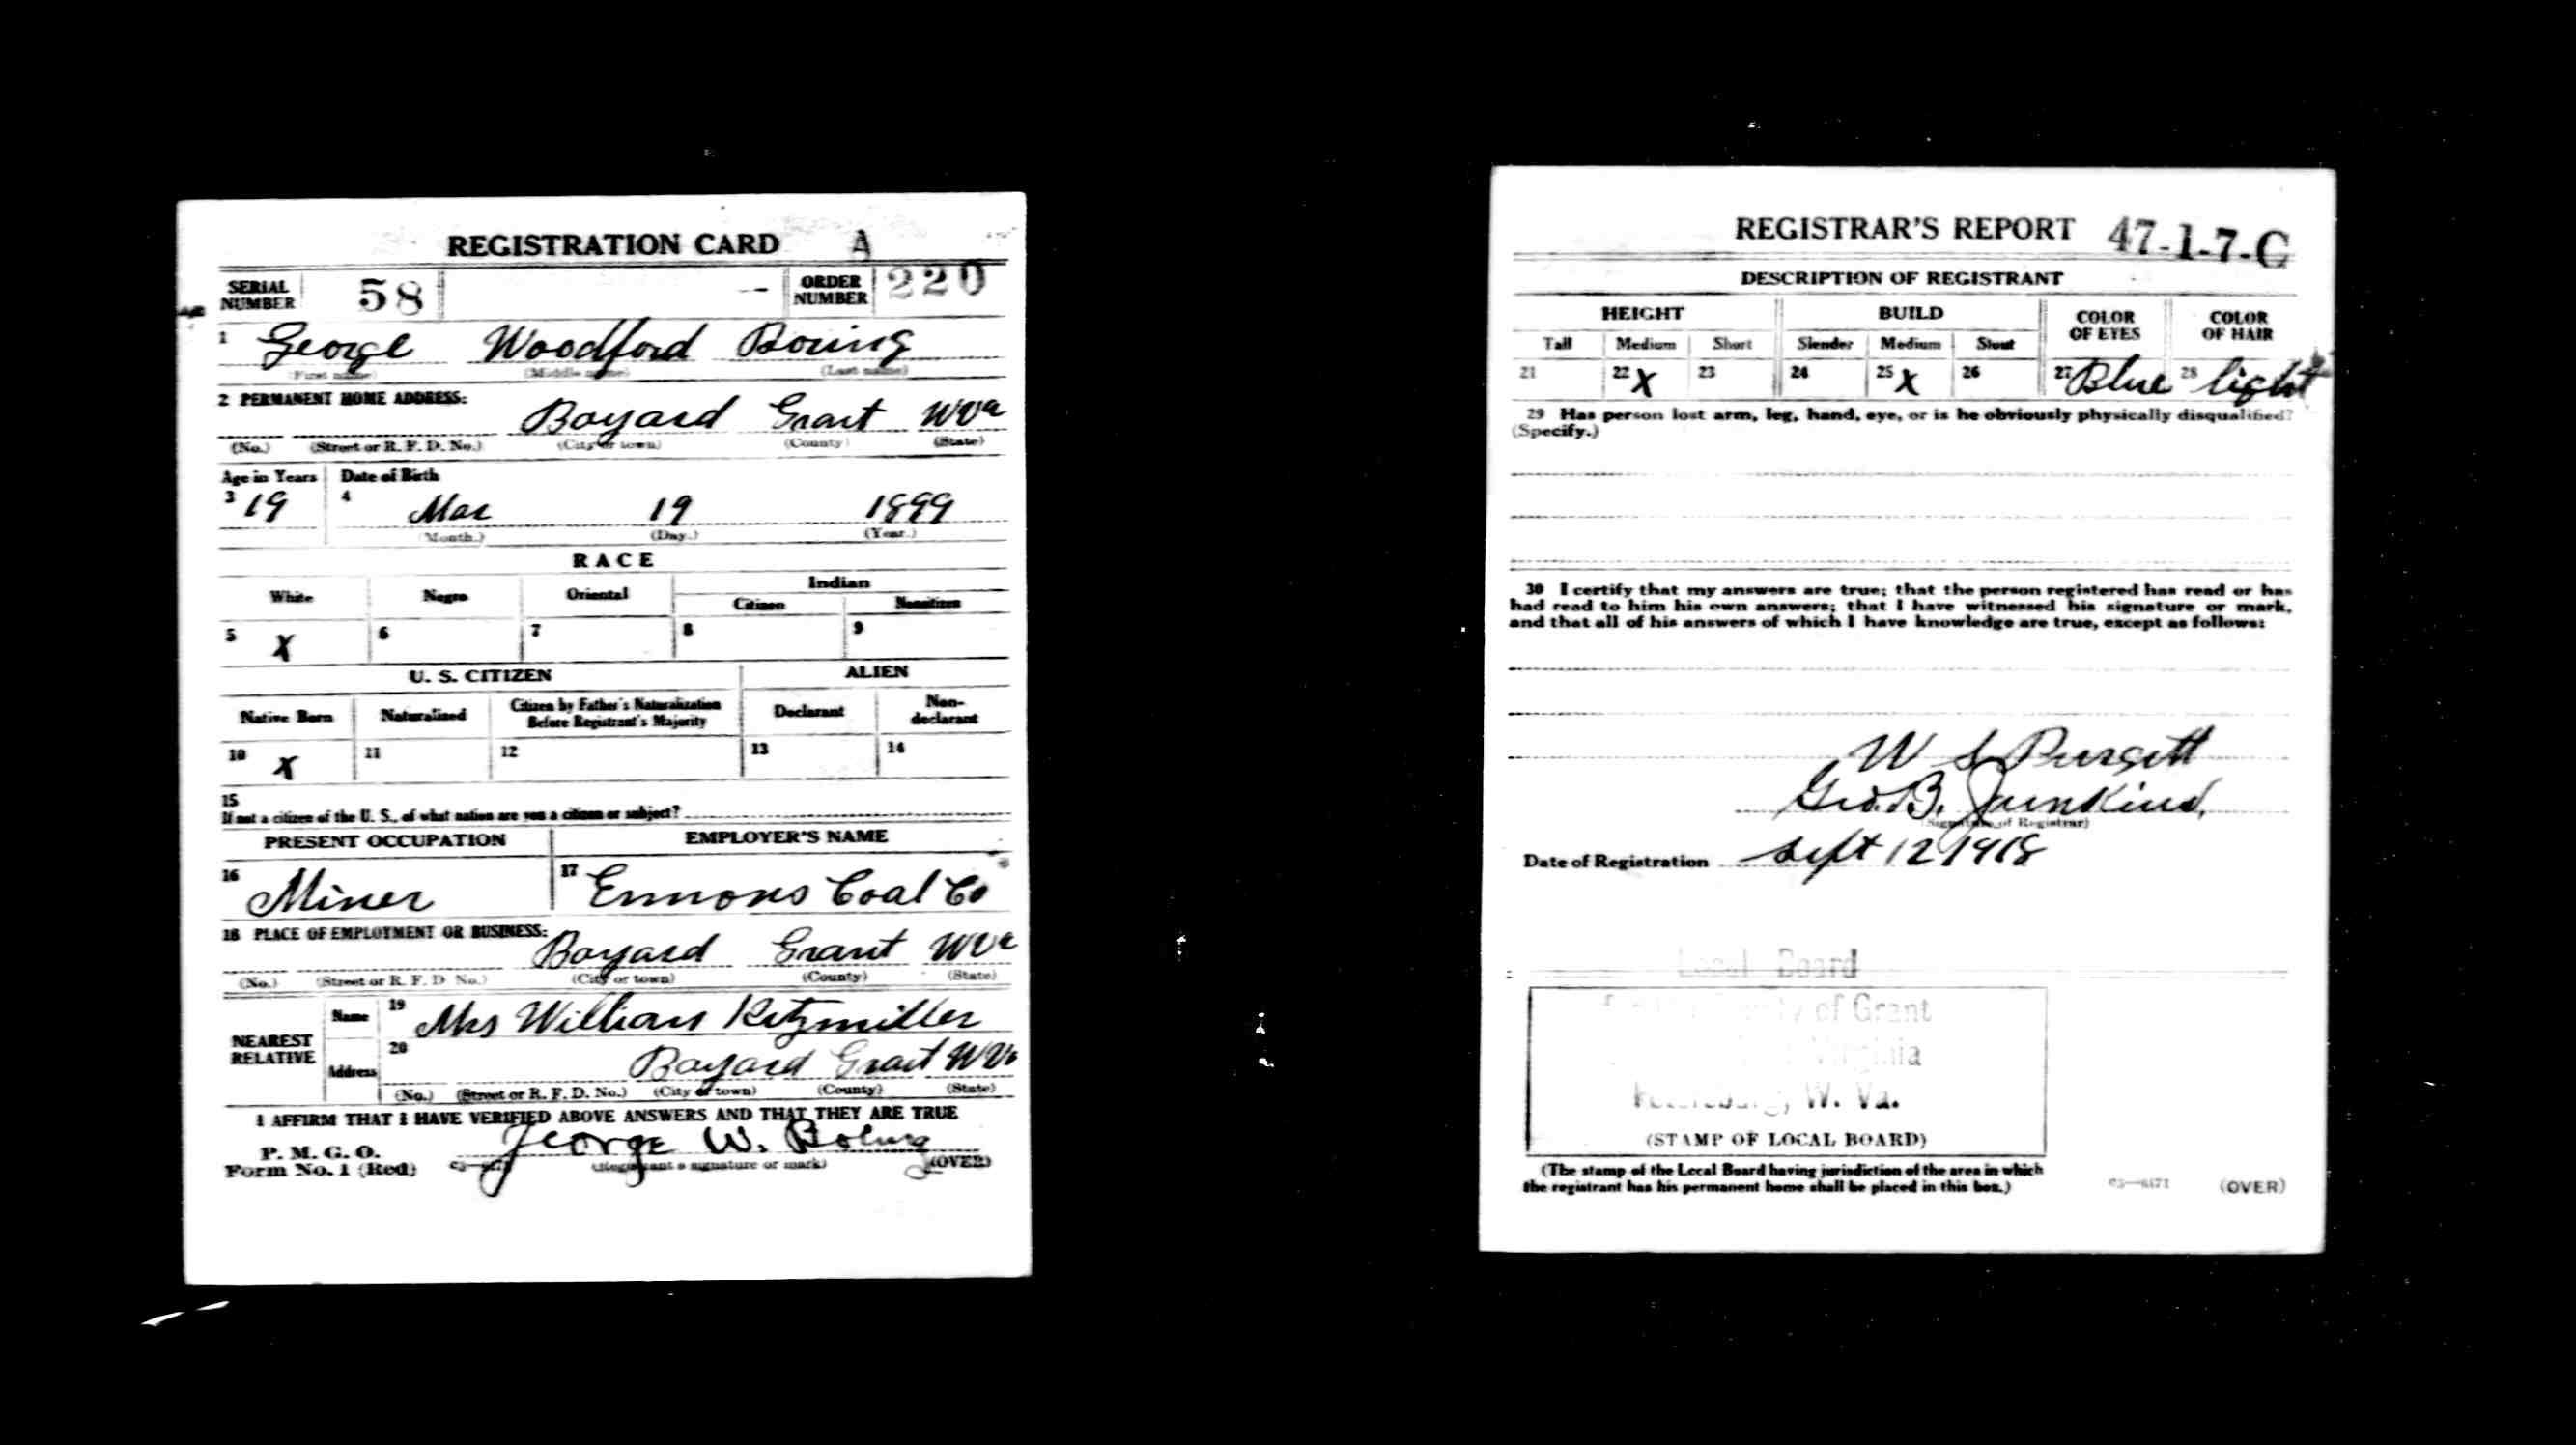 REGISTRATION CARD A
SERIAL NUMBER 58 ORDER NUMBER 220
1 George Woodford Boring
(First name) (Middle name) (Last name)
2 PERMANENT HOME ADDRESS:
Bayard Grant WVa
(No.) (Street or R. F. D. No.) (City or town) (County) (State)
Age in Years Date of Birth
3 19 4 Mar 19 1899
(Month.) (Day.) (Year.)
RACE
White Negro Oriental Indian
Citizen Noncitizen
5 X 6 7 8 9
U. S. CITIZEN ALIEN
Native Born Naturalized Citizen by Father's Naturalization Before Registrant's Majority Declarant Non-declarant
10 X 11 12 13 14
15
If not a citizen of the U. S., of what nation are you a citizen or subject?
PRESENT OCCUPATION EMPLOYER'S NAME
16 Miner 17 Emmons Coal Co
18 PLACE OF EMPLOYMENT OR BUSINESS:
Bayard Grant WVa
(No.) (Street or R. F. D. No.) (City or town) (County) (State)
NEAREST RELATIVE
Name 19 Mrs William Kitzmiller
Address 20 Bayard Grant WVa
(No.) (Street or R. F. D. No.) (City or town) (County) (State)
I AFFIRM THAT I HAVE VERIFIED ABOVE ANSWERS AND THAT THEY ARE TRUE
P. M. G. O.
Form No. 1 (Red) George W. Boring
(Registrant's signature or mark) (OVER)
REGISTRAR'S REPORT 47-1-7-C
DESCRIPTION OF REGISTRANT
HEIGHT BUILD COLOR OF EYES COLOR OF HAIR
Tall Medium Short Slender Medium Stout
21 22 X 23 24 25 X 26 27 Blue 28 light
29 Has person lost arm, leg, hand, eye, or is he obviously physically disqualified?
(Specify.)
30 I certify that my answers are true; that the person registered has read or has
had read to him his own answers; that I have witnessed his signature or mark,
and that all of his answers of which I have knowledge are true, except as follows:
W S Purgitt
Geo. B. Junkins,
(Signature of Registrar)
Date of Registration Sept 12 1918
Local Board
of Grant
Virginia
Petersburg, W. Va.
(STAMP OF LOCAL BOARD)
(The stamp of the Local Board having jurisdiction of the area in which
the registrant has his permanent home shall be placed in this box.)
(OVER)